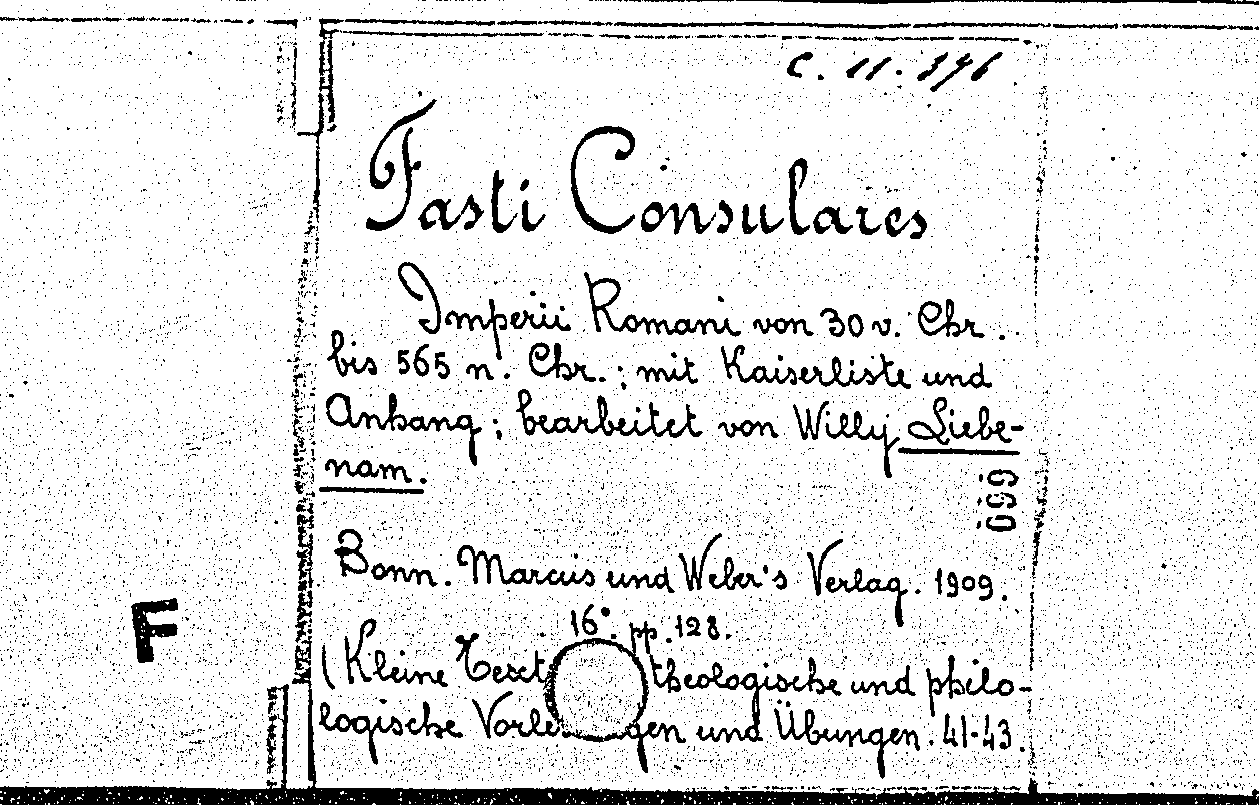 C. 11. 396
Fasti Consulares
Imperii Romani von 30 v. Chr.
bis 565 n. Chr.; mit Kaiserliste und
Anhang; bearbeitet von Willy Liebe-
nam.
699
Bonn. Marcus und Weber's Verlag. 1909.
16°. pp. 128.
F
(Kleine Texte theologische und philo-
logische Vorle gen und Übungen. 41-43.